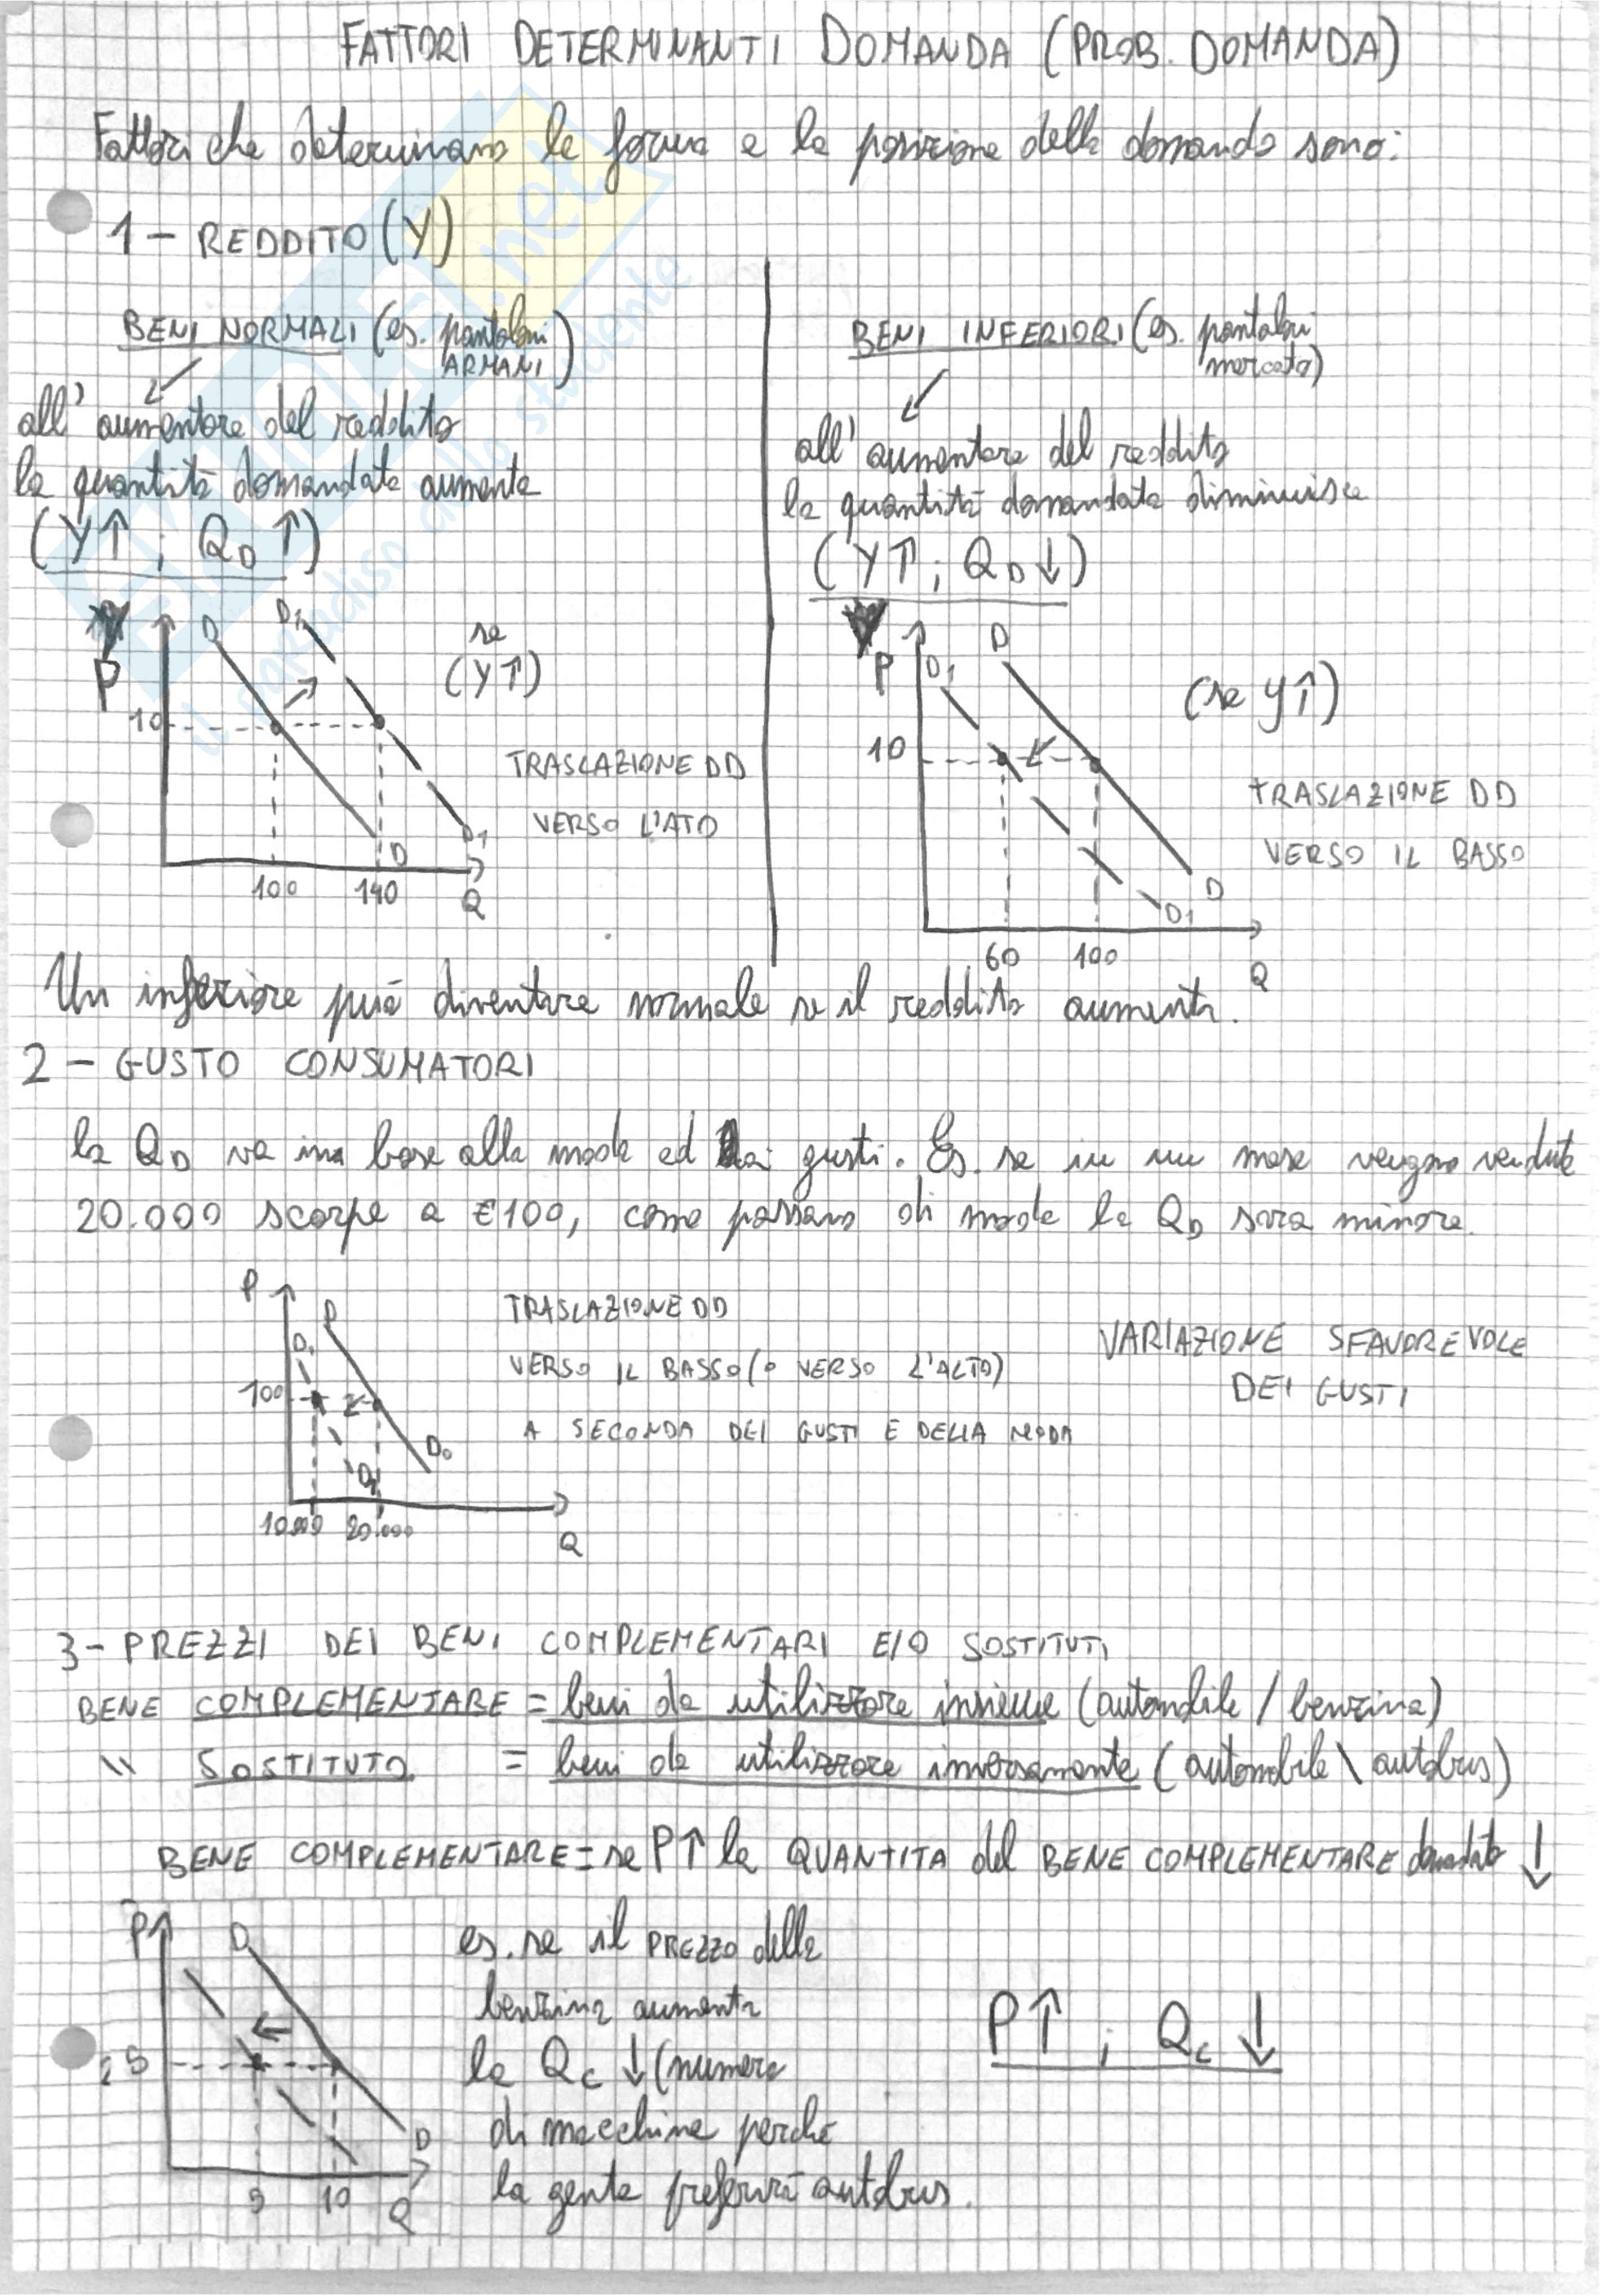 FATTORI DETERMINANTI DOMANDA (PROB. DOMANDA)
Fattori che determinano la forma e la posizione della domanda sono:
1 - REDDITO (Y)
BENI NORMALI (es. pantaloni
ARMANI)
all'aumentare del reddito
la quantità domandata aumenta
(Y↑ ; QD ↑)
P
D
D1
se
(Y↑)
10
TRASLAZIONE DD
VERSO L'ATO
D
D1
100
140
Q
BENI INFERIORI (es. pantaloni
mercato)
all'aumentare del reddito
la quantità domandata diminuisce
(Y↑ ; QD ↓)
P
D1
D
(se Y↑)
10
TRASLAZIONE DD
VERSO IL BASSO
D
D1
60
100
Q
Un inferiore può diventare normale se il reddito aumenta.
2 - GUSTO CONSUMATORI
la QD va in base alla moda ed ai gusti. Es. se in un mese vengono vendute
20.000 scarpe a €100, come passano di moda la QD sara minore.
P
D
D1
100
TRASLAZIONE DD
VERSO IL BASSO (o VERSO L'ALTO)
A SECONDA DEI GUSTI E DELLA MODA
VARIAZIONE SFAVOREVOLE
DEI GUSTI
D0
D1
10.000
20.000
Q
3 - PREZZI DEI BENI COMPLEMENTARI E/O SOSTITUTI
BENE COMPLEMENTARE = beni da utilizzare insieme (automobile / benzina)
" SOSTITUTO = beni da utilizzare inversamente (automobile \ autobus)
BENE COMPLEMENTARE = se P↑ la QUANTITA del BENE COMPLEMENTARE domandato ↓
P
D
es. se il PREZZO della
benzina aumenta
la Qc ↓ (numero
di macchine perché
la gente preferirà autobus.
P↑ ; Qc ↓
D
9
10
Q
.net
il paradiso dello studente